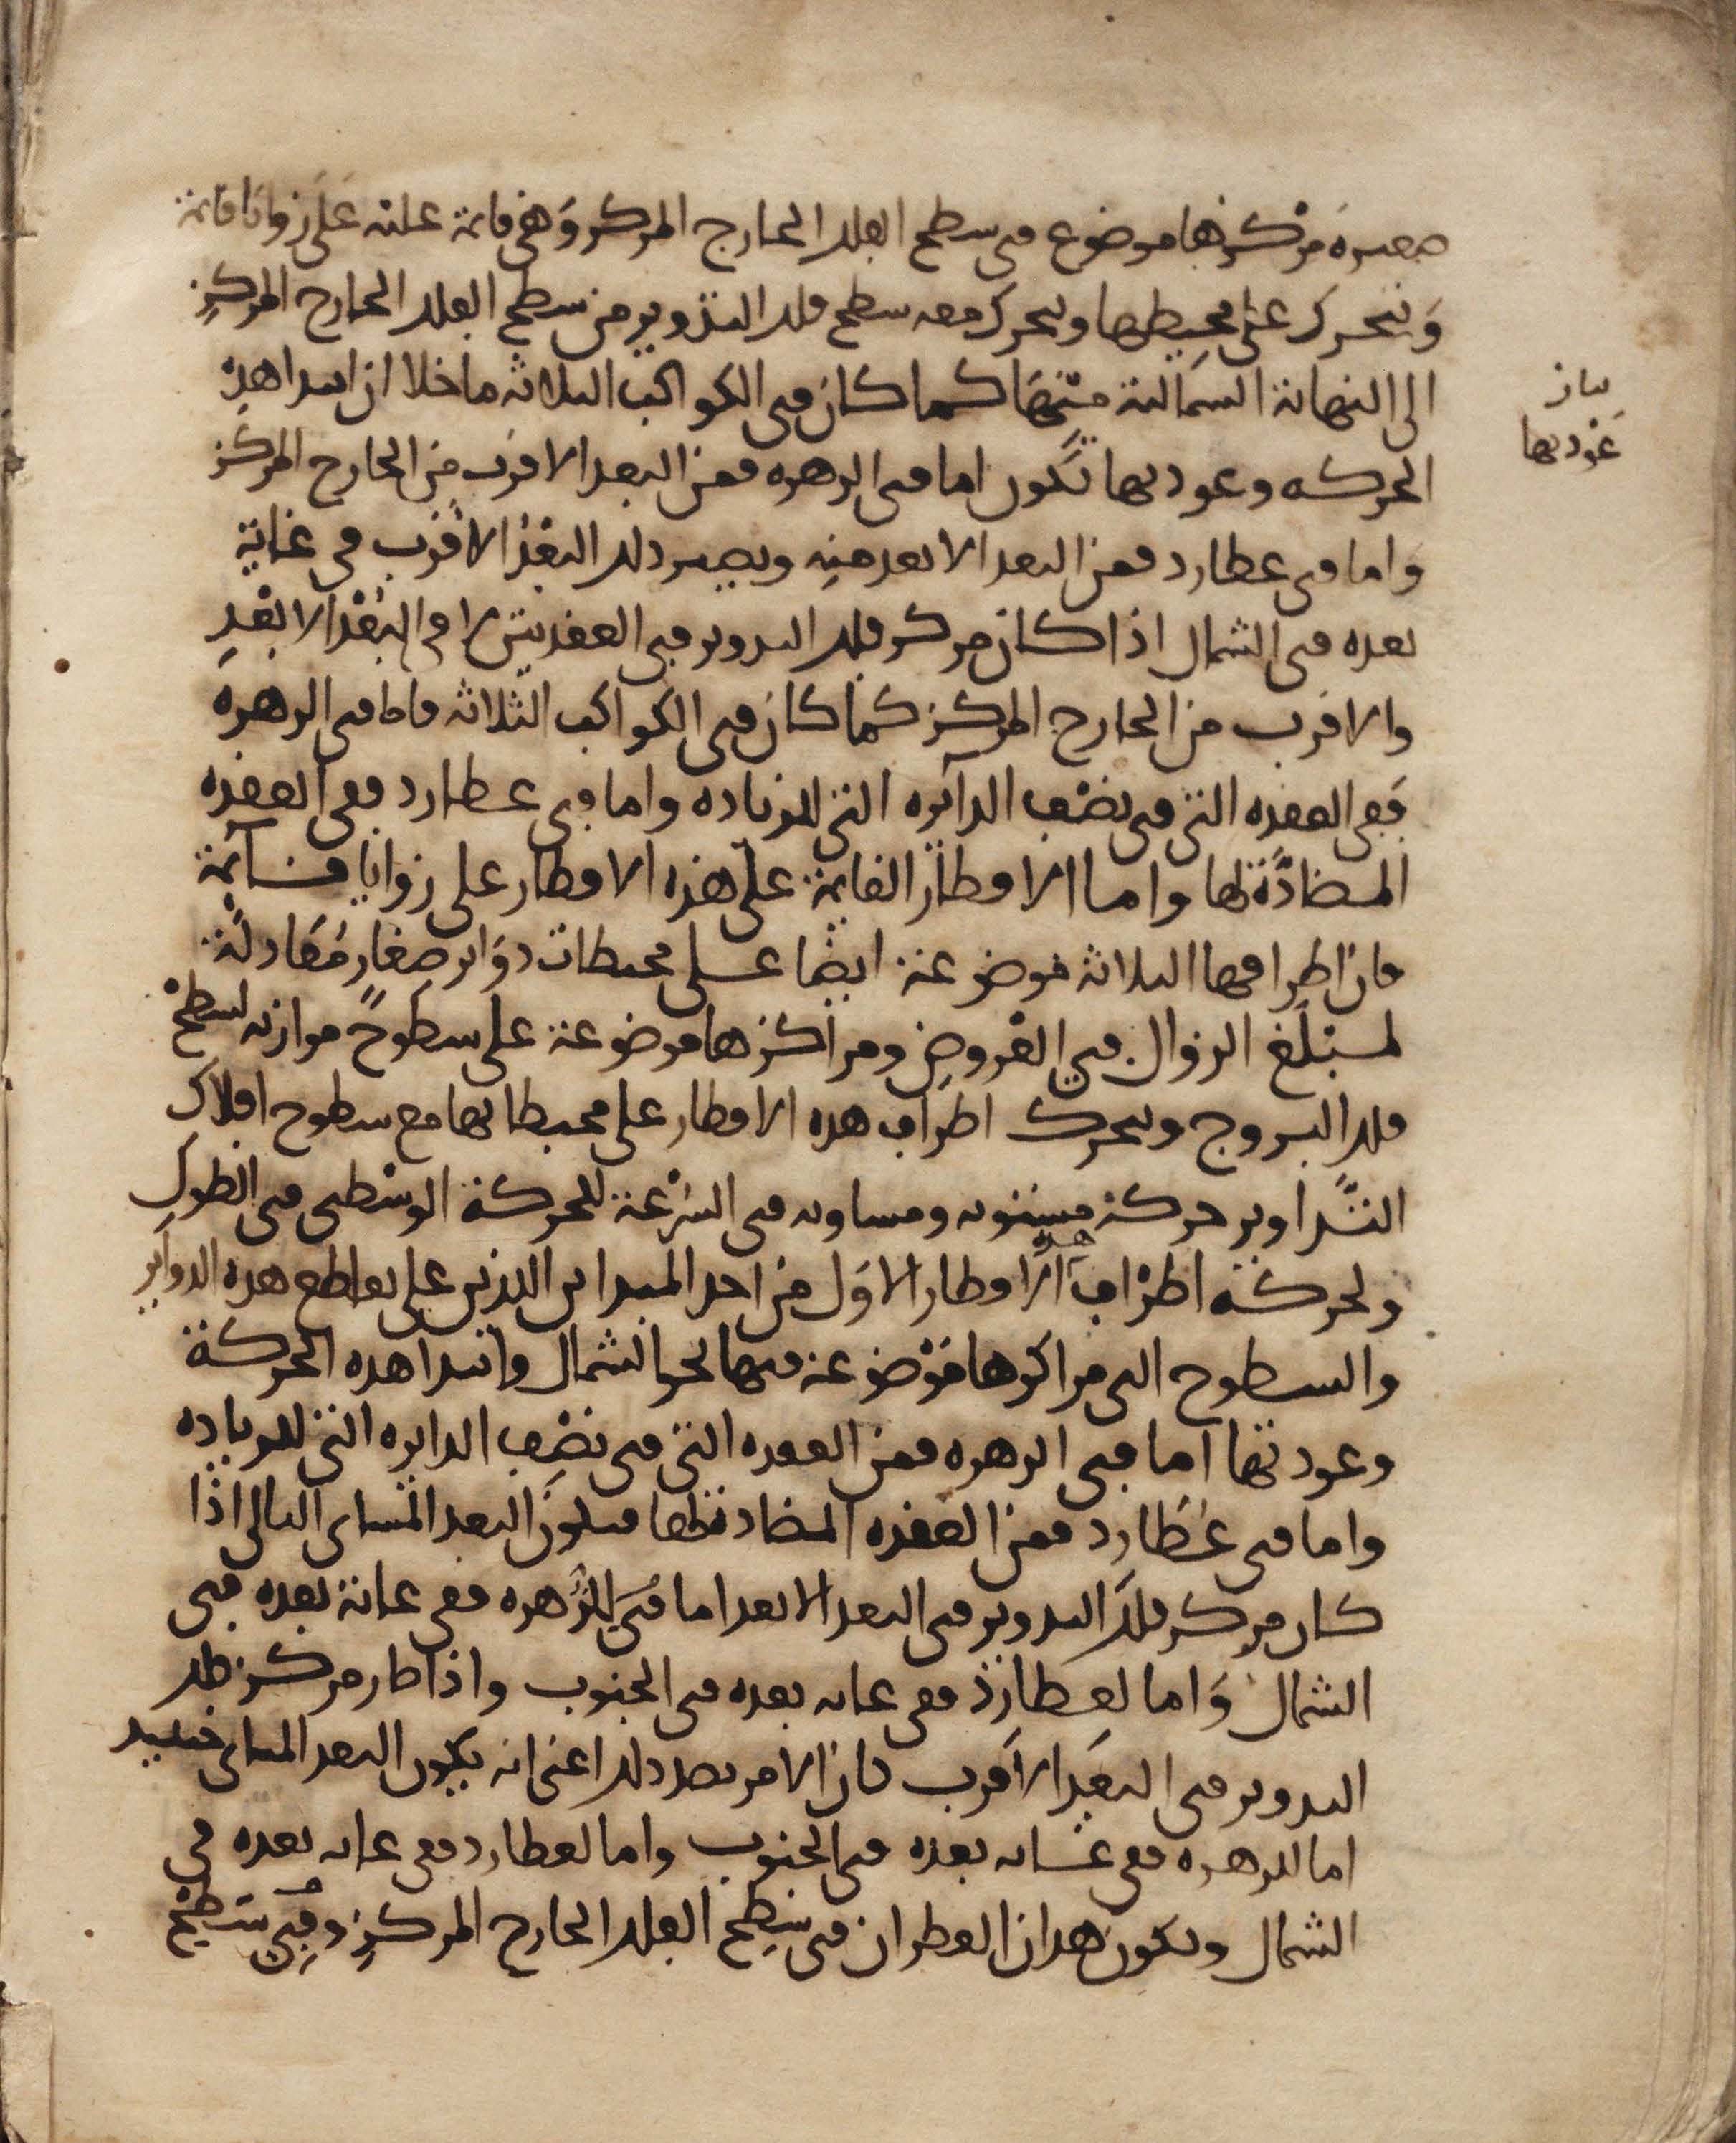 صغيرة مركزها موضوع في سطح الفلك الخارج المركز وهي قايمة عليه على زوايا قايمة
وتتحرك على محيطها ويحرك معه سطح فلك التذوير من سطح الفلك الخارج المركز
الى النهاية الشمالية منها كما كان في الكواكب الثلاثة ما خلا ان ابتدا هذه
الحركه وعودتها تكون اما في الزهره فمن البعد الاقرب من الخارج المركز
واما في عطارد فمن البعد الابعد منه ويصير ذلك البعد الاقرب في غاية
بعده في الشمال اذا كان مركز فلك التدوير في العقدتين لا في البعد الابعد
والاقرب من الخارج المركز كما كان في الكواكب الثلاثه فاما في الزهره
ففي العقده التي في نصف الدآيره التي للزياده واما في عطارد ففي العقده
المضادة لها واما الاقطار القايمة على هذه الاقطار على زوايا قآيمة
فان اطرافها الثلاثة موضوعة ايضا على محيطات دواير صغار معادلة
لمبلغ الزوال في العروض ومراكزها موضوعة على سطوح موازيه لسطح
فلك البروج ويحرك اطراف هذه الاقطار على محيطاتها مع سطوح افلاك
التداوير حركة مستويه ومساويه في السرعة للحركة الوسطى في الطول
ولحركة اطراف هذه الاقطار الاول من احد المبداين اللذين على تقاطع هذه الدواير
والسطوح التي مراكزها موضوعة فيها نحو الشمال وابتدا هذه الحركة
وعودتها اما في الزهره فمن العقده التي في نصف الدايره التي للزياده
واما في عطارد فمن العقده المضادة لها فيكون البعد المساى التالى اذا
كان مركز فلك التدوير في البعد الابعد اما في الزهره ففي غاية بعده في
الشمال واما لعطارد ففي غايه بعده في الجنوب واذا صار مركز فلك
التدوير في البعد الاقرب كان الامر بضد ذلك اعنى انه يكون البعد المساى حينيد
اما للزهره ففي غايه بعده في الجنوب واما لعطارد ففي غايه بعده في
الشمال ويكون هذان القطران في سطح الفلك الخارج المركز وفي سطح
بيان
عودتها